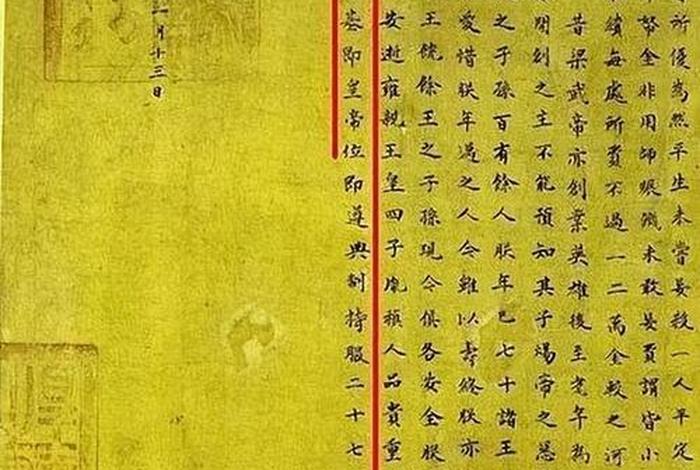 所優為然平生未嘗妄殺一人平定
帑金非用師賑饑未敢妄費謂皆小
績每處所費不過一二萬金較之河
昔梁武帝亦創業英雄後至耄年為
開創之主不能預知其子煬帝之惡
之子孫百有餘人朕年已七十諸王
愛惜朕年邁之人今雖以壽終朕亦
王饒餘王之子孫現今俱各安全朕
安逝雍親王皇四子胤禛人品貴重
基即皇帝位即遵典制持服二十七
一月十三日